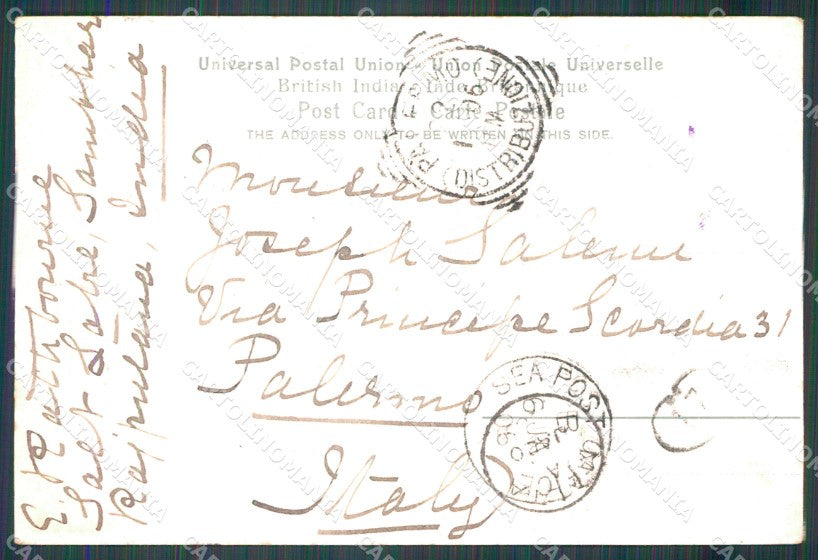 Universal Postal Union - Union Postale Universelle
British India - Inde Britannique
Post Card - Carte Postale
THE ADDRESS ONLY TO BE WRITTEN ON THIS SIDE.
PALERMO
(DISTRIBUZIONE)
06
Monsieur
Joseph Salemi
Via Principe Scordia 31
Palermo
Italy
SEA POST OFFICE
B
6 JA
06
E. Rathbourne
Salt Lake, Sambhar
Rajputana, India
CARTOLINOMANIA